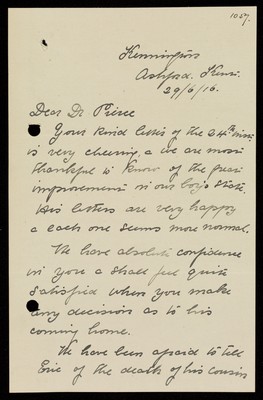 1057.
Kennington
Ashford. Kent.
29/6/16.
Dear Dr Pierce
Your kind letter of the 24th inst:
is very cheering, & we are most
thankful to know of the great
improvement in our boy's state.
His letters are very happy
& each one seems more normal.
We have absolute confidence
in you & shall feel quite
satisfied when you make
any decision as to his
coming home.
We have been afraid to tell
Eric of the death of his cousin